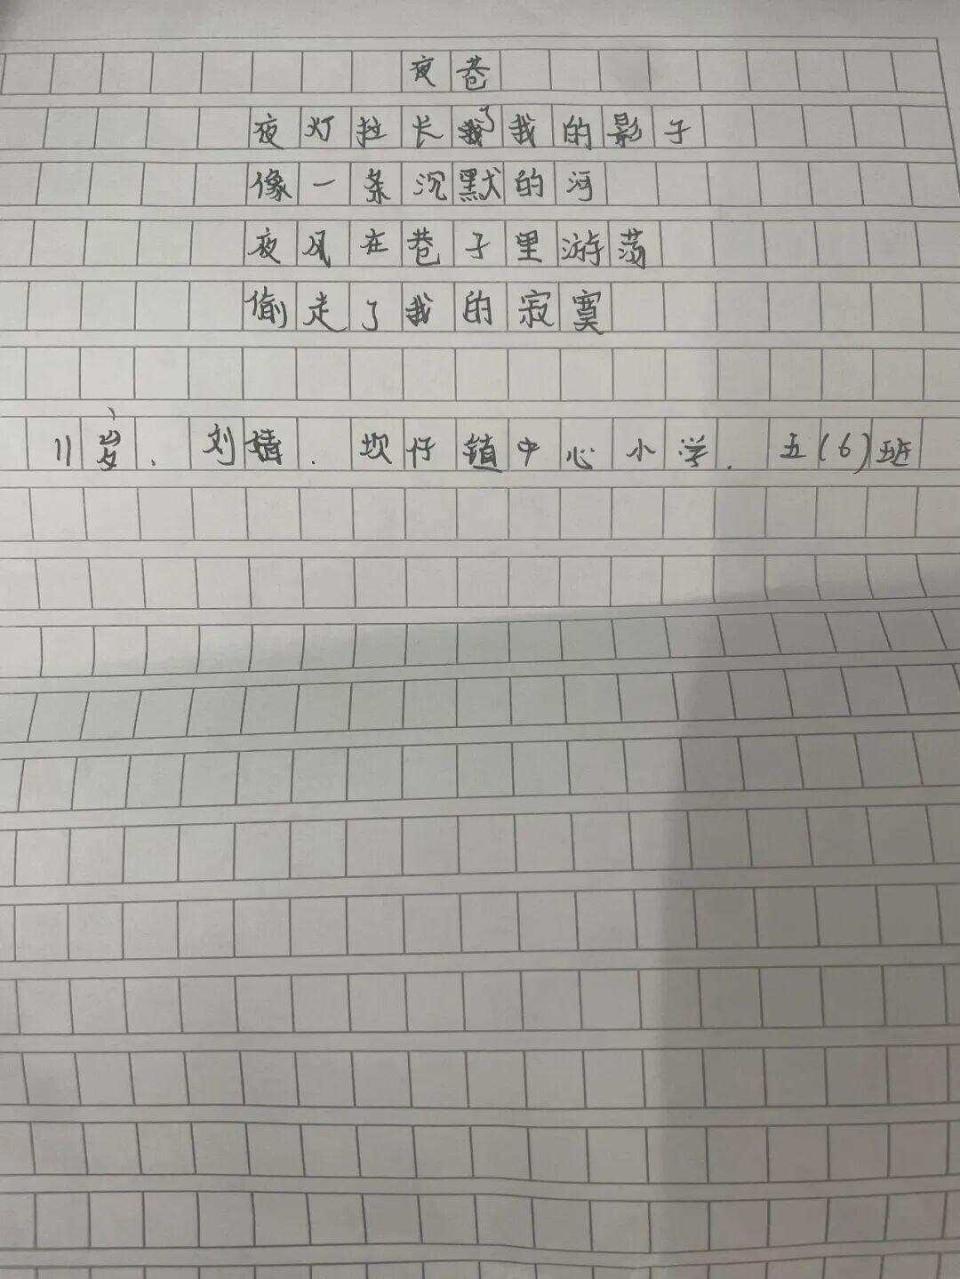 夜巷
夜灯拉长了我的影子
像一条沉默的河
夜风在巷子里游荡
偷走了我的寂寞
11岁.刘婧.坎仔镇中心小学.五(6)班